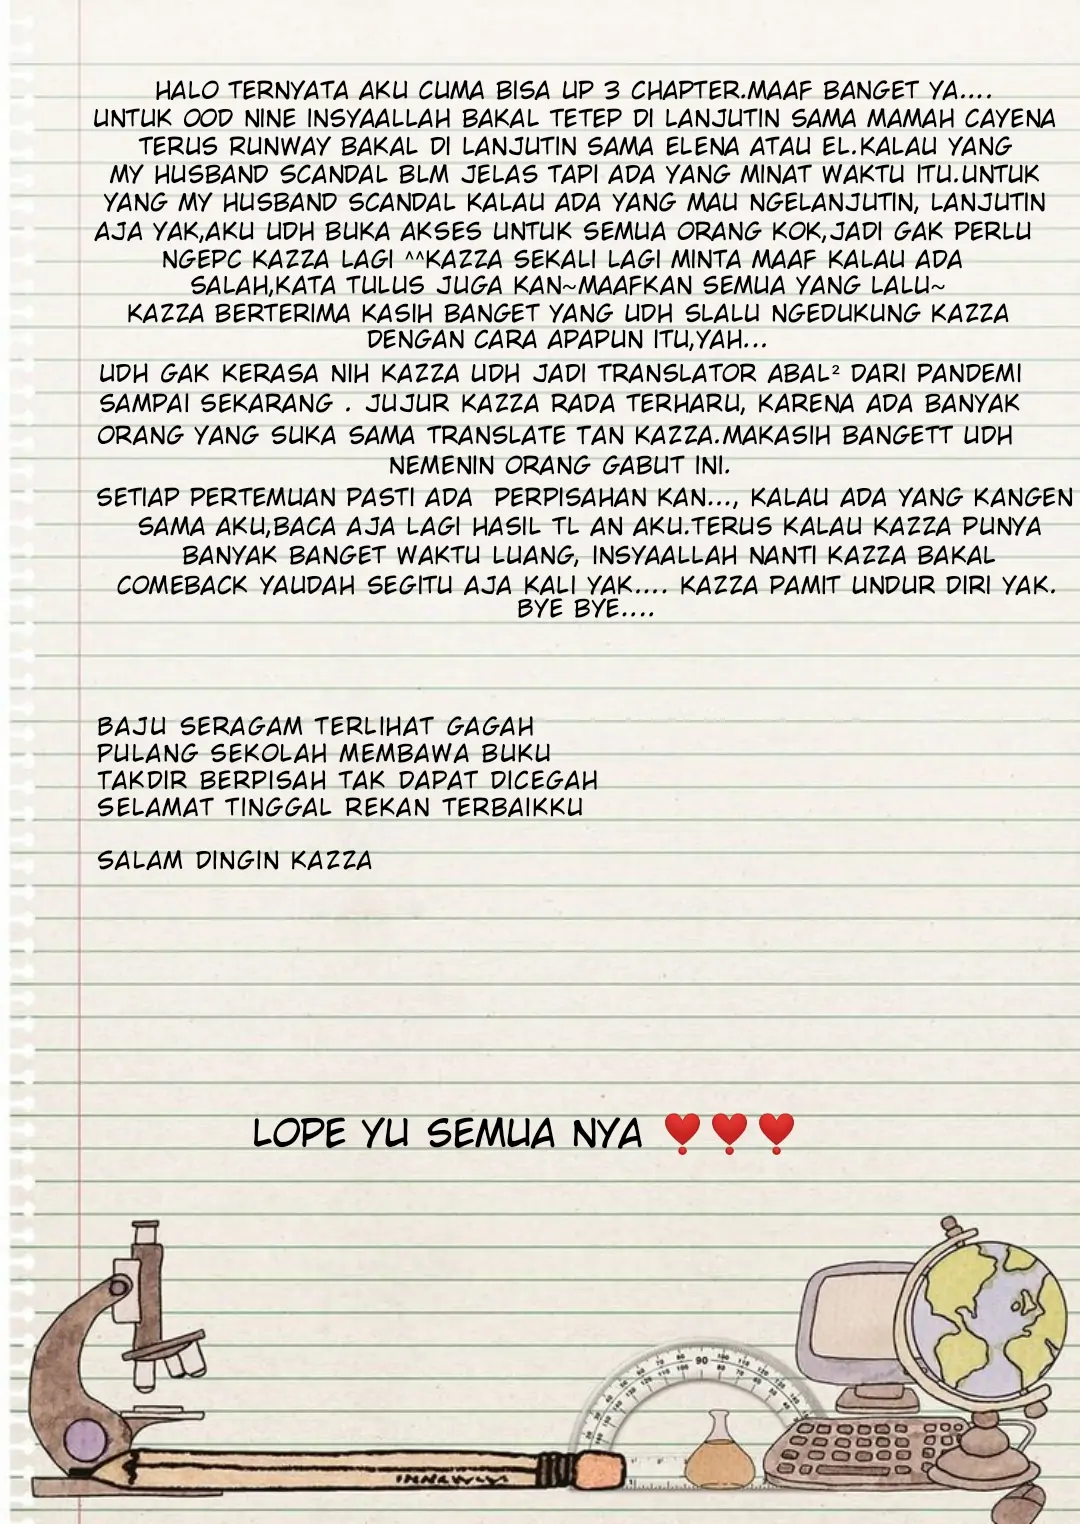 HALO TERNYATA AKU CUMA BISA UP 3 CHAPTER.MAAF BANGET YA....
UNTUK OOD NINE INSYAALLAH BAKAL TETEP DI LANJUTIN SAMA MAMAH CAYENA
TERUS RUNWAY BAKAL DI LANJUTIN SAMA ELENA ATAU EL.KALAU YANG
MY HUSBAND SCANDAL BLM JELAS TAPI ADA YANG MINAT WAKTU ITU.UNTUK
YANG MY HUSBAND SCANDAL KALAU ADA YANG MAU NGELANJUTIN, LANJUTIN
AJA YAK,AKU UDH BUKA AKSES UNTUK SEMUA ORANG KOK,JADI GAK PERLU
NGEPC KAZZA LAGI ^^KAZZA SEKALI LAGI MINTA MAAF KALAU ADA
SALAH,KATA TULUS JUGA KAN~MAAFKAN SEMUA YANG LALU~
KAZZA BERTERIMA KASIH BANGET YANG UDH SLALU NGEDUKUNG KAZZA
DENGAN CARA APAPUN ITU,YAH...
UDH GAK KERASA NIH KAZZA UDH JADI TRANSLATOR ABAL² DARI PANDEMI
SAMPAI SEKARANG . JUJUR KAZZA RADA TERHARU, KARENA ADA BANYAK
ORANG YANG SUKA SAMA TRANSLATE TAN KAZZA.MAKASIH BANGETT UDH
NEMENIN ORANG GABUT INI.
SETIAP PERTEMUAN PASTI ADA PERPISAHAN KAN..., KALAU ADA YANG KANGEN
SAMA AKU,BACA AJA LAGI HASIL TL AN AKU.TERUS KALAU KAZZA PUNYA
BANYAK BANGET WAKTU LUANG, INSYAALLAH NANTI KAZZA BAKAL
COMEBACK YAUDAH SEGITU AJA KALI YAK.... KAZZA PAMIT UNDUR DIRI YAK.
BYE BYE....
BAJU SERAGAM TERLIHAT GAGAH
PULANG SEKOLAH MEMBAWA BUKU
TAKDIR BERPISAH TAK DAPAT DICEGAH
SELAMAT TINGGAL REKAN TERBAIKKU
SALAM DINGIN KAZZA
LOPE YU SEMUA NYA ❣❣❣
90